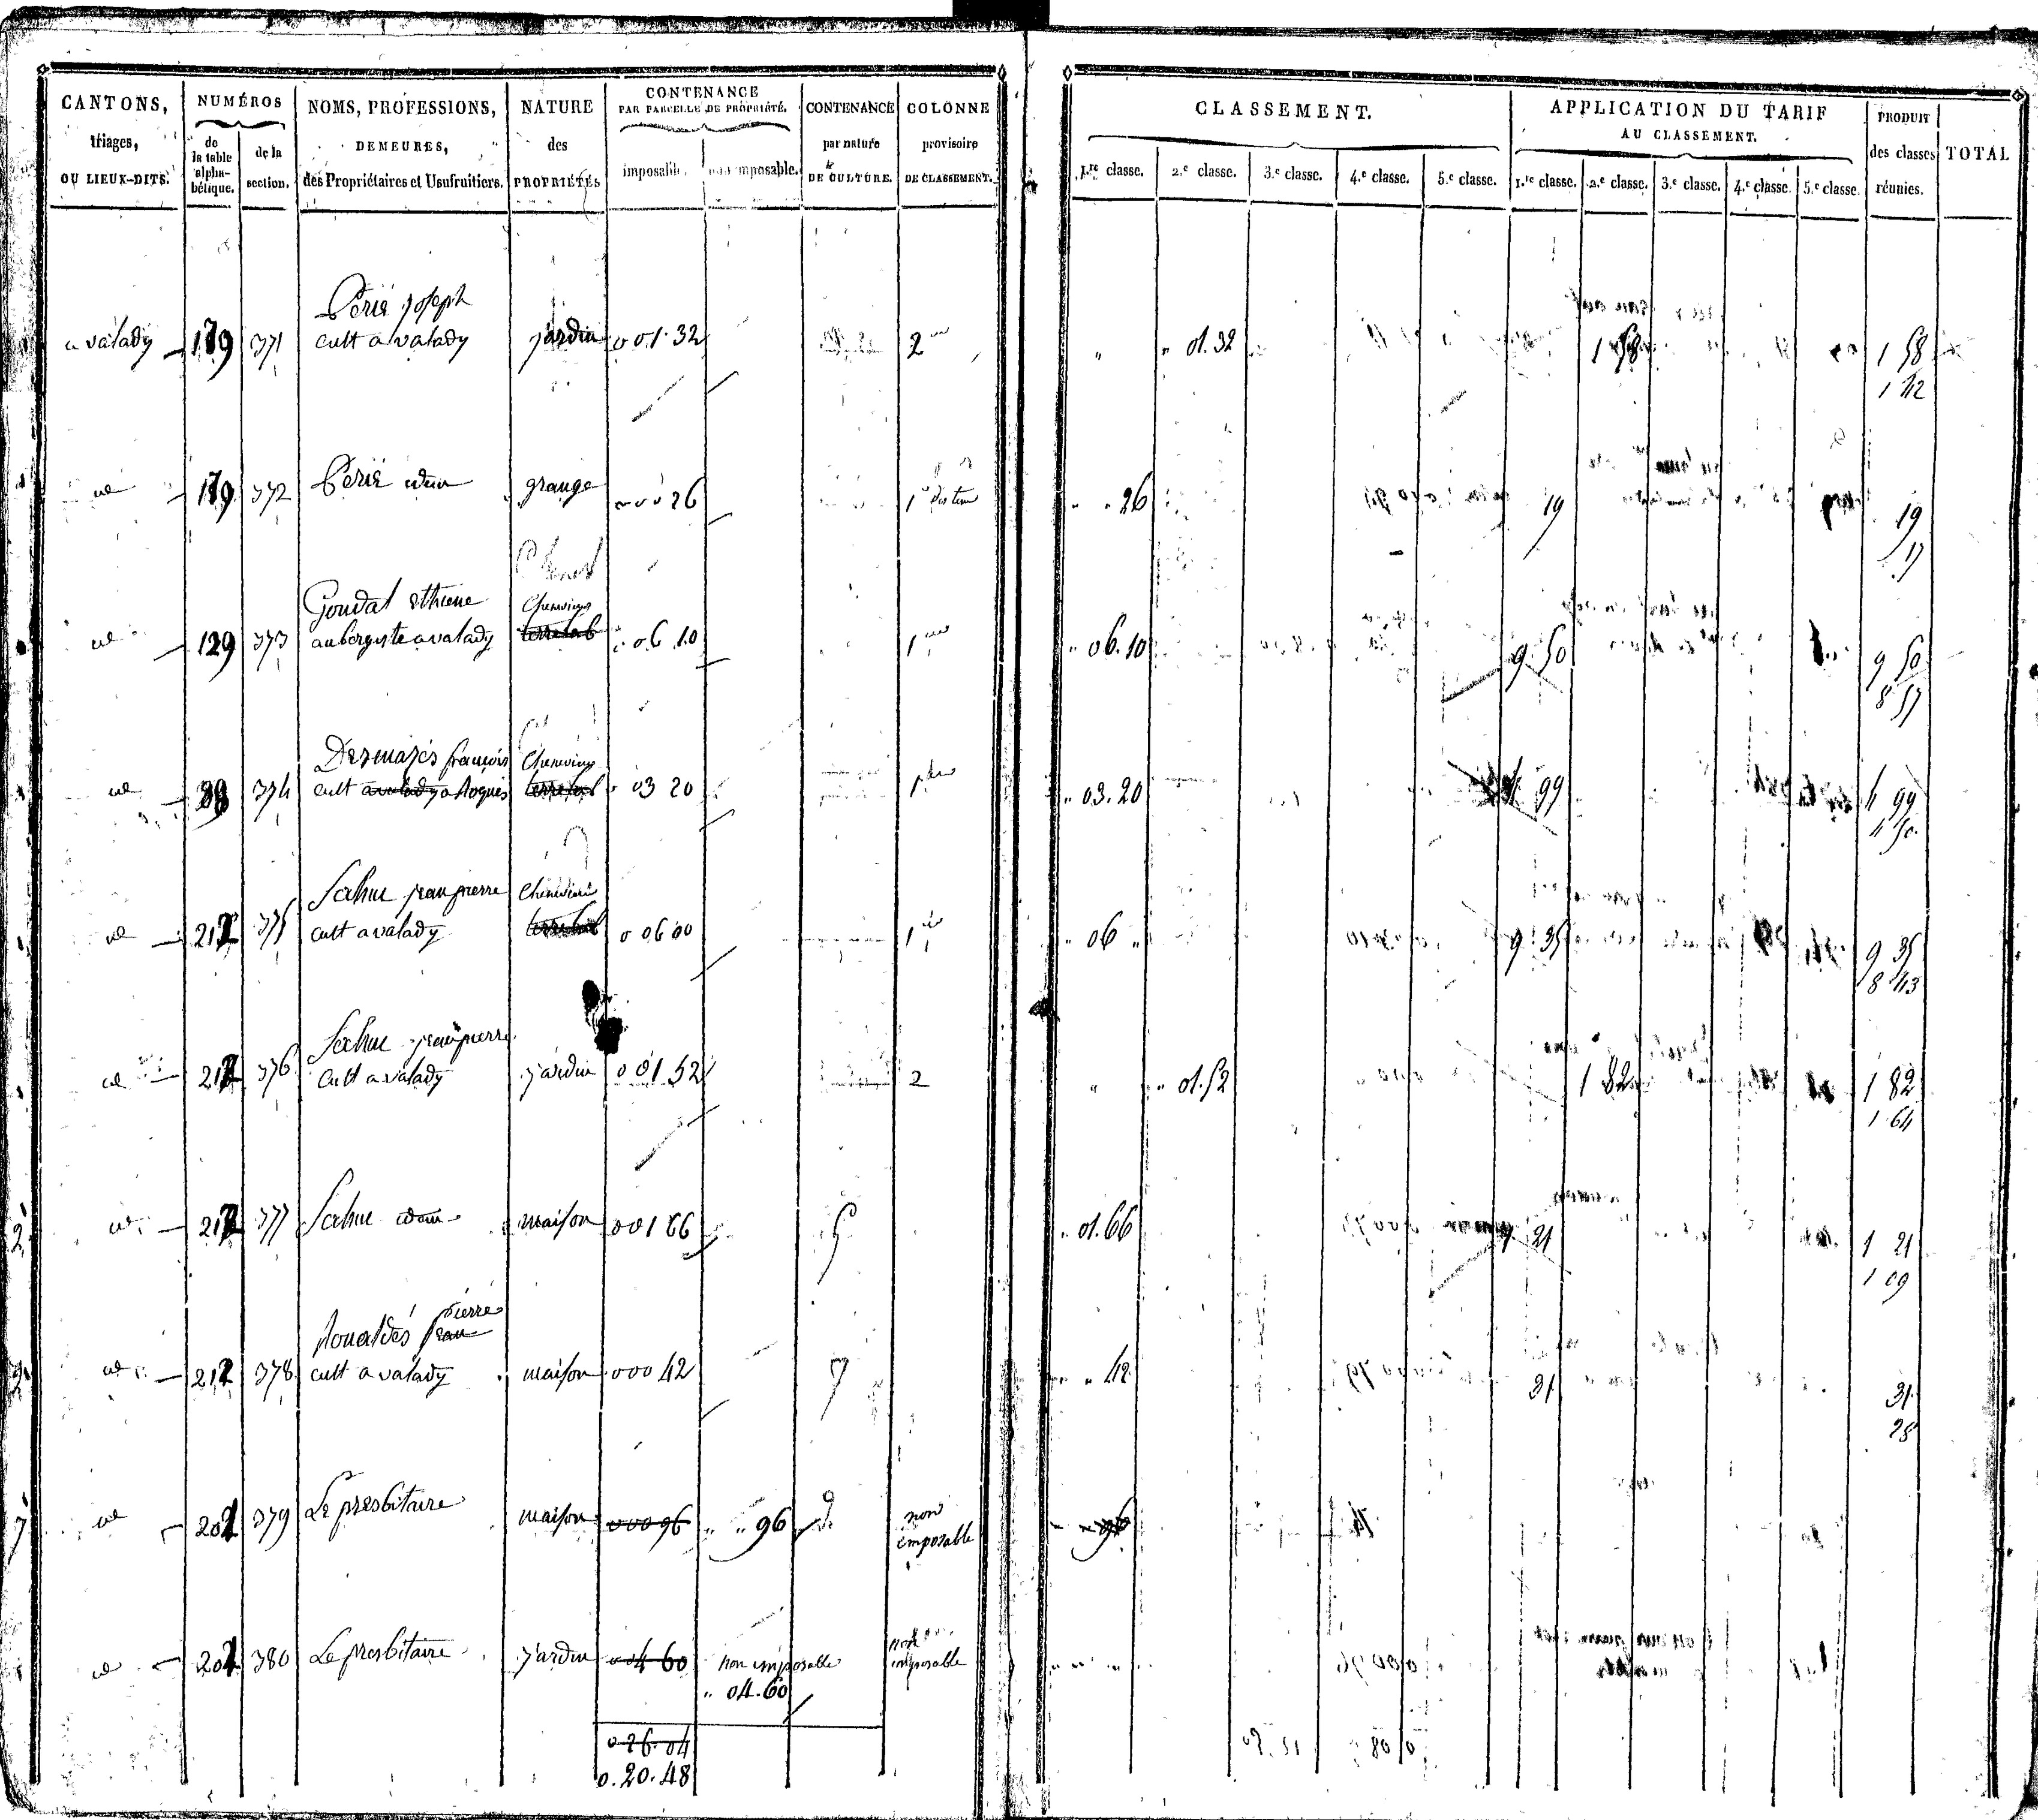 CANTONS, triages, OU LIEUX-DITS.
NUMÉROS
de la table alpha-bétique.
de la section.
NOMS, PROFESSIONS, DEMEURES, des Propriétaires et Usufruitiers.
NATURE des PROPRIÉTÉS
CONTENANCE PAR PARCELLE DE PROPRIÉTÉ.
imposable. non imposable.
CONTENANCE par nature de CULTURE.
COLONNE provisoire DE CLASSEMENT.
CLASSEMENT.
1.re classe. 2.e classe. 3.e classe. 4.e classe. 5.e classe.
APPLICATION DU TARIF AU CLASSEMENT.
1.re classe. 2.e classe. 3.e classe. 4.e classe. 5.e classe.
PRODUIT des classes réunies.
TOTAL
Perié Joseph
a valady 179 371 cult a valady jardin 0 01.32 2 " " 01.32 1 58 1 58
1 42
id 179 372 Perié idem grange 26 1 " " 26 19 19
17
Goudal ethiene Cheneviere
id 129 373 aubergiste a valady terre lab 06 10 1 " 06.10 9 50 9 50
8 57
françois Cheneviere
id 374 cult a valady a terre lab 03 20 1 " 03.20 4 99 4 99
4 50
Sahuc jean pierre Cheneviere
id 217 375 cult a valady terre lab 0 06 00 1 " 06 " 9 35 9 35
8 43
Sahuc jean pierre
id 217 376 cult a valady jardin 0 01.52 2 " " 01.52 1 82 1 82
1 64
id 217 377 Sahuc idem maison 0 01 66 " 01.66 1 21 1 21
1 09
pierre
Roualdés jean
id 212 378 cult a valady maison 000 42 " " 42 31 31
28
id 202 379 Le presbitaire maison 000 96 " " 96 non imposable " " 96
id 202 380 Le presbitaire jardin 0 04 60 non imposable non imposable
" 04.60
0 26.04
0.20.48